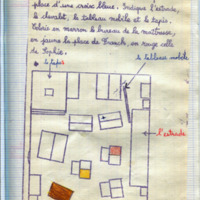 place d'une croix bleue. Indique l'estrade,
le chevalet, le tableau mobile et le tapis.
Colorie en marron le bureau de la maîtresse,
en jaune la place de Franck, en rouge celle
de Sophie.
le tableau mobile
le tapis
l'estrade